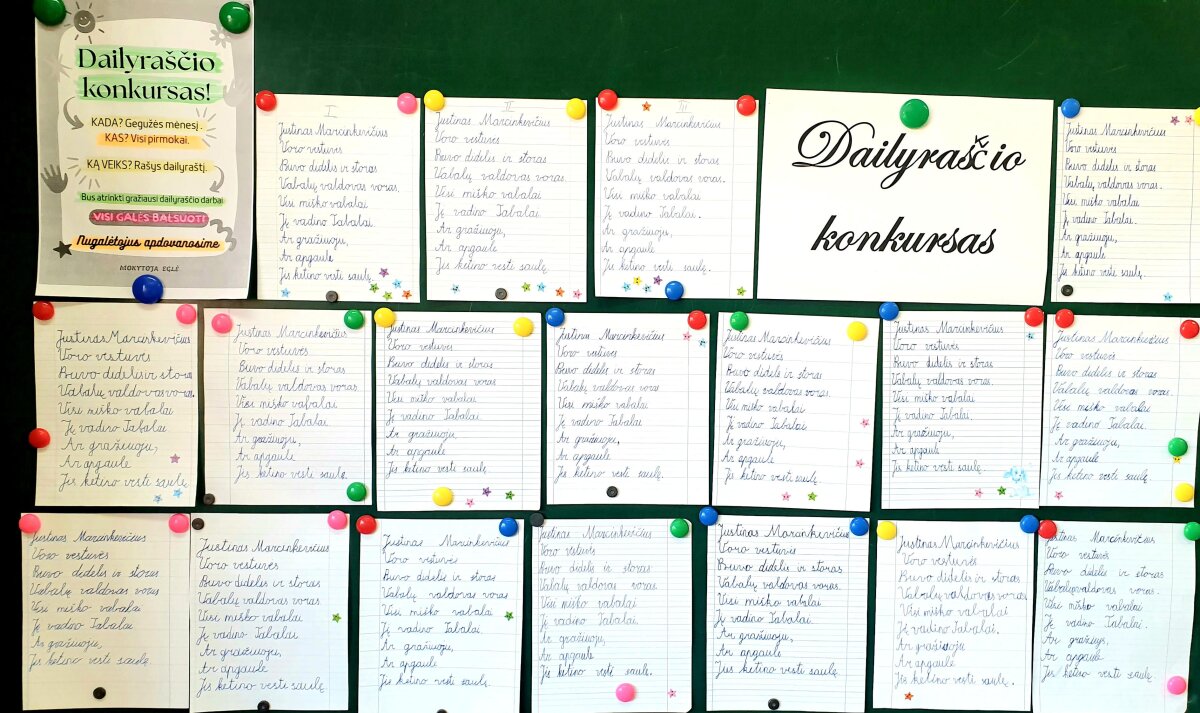 Dailyraščio
konkursas!
KADA? Gegužės mėnesį.
KAS? Visi pirmokai.
KĄ VEIKS? Rašys dailyraštį.
Bus atrinkti gražiausi dailyraščio darbai
VISI GALĖS BALSUOTI
Nugalėtojus apdovanosime
MOKYTOJA EGLĖ
I
Justinas Marcinkevičius
Voro vestuvės
Buvo didelis ir storas
Vabalų valdovas voras.
Visi miško vabalai
Jį vadino Tabalai.
Ar gražiuoju,
Ar apgaule
Jis ketino vesti saulę.
II
Justinas Marcinkevičius
Voro vestuvės
Buvo didelis ir storas
Vabalų valdovas voras.
Visi miško vabalai
Jį vadino Tabalai.
Ar gražiuoju,
Ar apgaule
Jis ketino vesti saulę.
III
Justinas Marcinkevičius
Voro vestuvės
Buvo didelis ir storas
Vabalų valdovas voras.
Visi miško vabalai
Jį vadino Tabalai.
Ar gražiuoju,
Ar apgaule
Jis ketino vesti saulę.
Dailyraščio
konkursas
Justinas Marcinkevičius
Voro vestuvės
Buvo didelis ir storas
Vabalų valdovas voras.
Visi miško vabalai
Jį vadino Tabalai.
Ar gražiuoju,
Ar apgaule
Jis ketino vesti saulę.
Justinas Marcinkevičius
Voro vestuvės
Buvo didelis ir storas
Vabalų valdovas voras.
Visi miško vabalai
Jį vadino Tabalai.
Ar gražiuoju,
Ar apgaule
Jis ketino vesti saulę
Justinas Marcinkevičius
Voro vestuvės
Buvo didelis ir storas
Vabalų valdovas voras.
Visi miško vabalai
Jį vadino Tabalai.
Ar gražiuoju,
Ar apgaule
Jis ketino vesti saulę.
Justinas Marcinkevičius
Voro vestuvės
Buvo didelis ir storas
Vabalų valdovas voras
Visi miško vabalai
Jį vadino Tabalai
Ar gražiuoju,
Ar apgaule
Jis ketino vesti saulę
Justinas Marcinkevičius
Voro vestuvės
Buvo didelis ir storas
Vabalų valdovas voras
Visi miško vabalai
Jį vadino Tabalai
Ar gražiuoju,
Ar apgaule
Jis ketino vesti saulę.
Justinas Marcinkevičius
Voro vestuvės
Buvo didelis ir storas
Vabalų valdovas voras.
Visi miško vabalai
Jį vadino Tabalai
Ar gražiuoju,
Ar apgaule
Jis ketino vesti saulę
Justinas Marcinkevičius
Voro vestuvės
Buvo didelis ir storas
Vabalų valdovas voras.
Visi miško vabalai
Jį vadino Tabalai.
Ar gražiuoju,
Ar apgaule
Jis ketino vesti saulę.
Justinas Marcinkevičius
Voro vestuvės
Buvo didelis ir storas
Vabalų valdovas voras
Visi miško vabalai
Jį vadino Tabalai
Ar gražiuoju,
Ar apgaule
Jis ketino vesti saulę.
Justinas Marcinkevičius
Voro vestuvės
Buvo didelis ir storas
Vabalų valdovas voras
Visi miško vabalai
Jį vadino Tabalai
Ar gražiuoju,
Jis ketino vesti saulę.
Justinas Marcinkevičius
Voro vestuvės
Buvo didelis ir storas
Vabalų valdovas voras.
Visi miško vabalai
Jį vadino Tabalai
Ar gražiuoju,
Ar apgaule
Jis ketino vesti saulę
Justinas Marcinkevičius
Voro vestuvės
Buvo didelis ir storas
Vabalų valdovas voras
Visi miško vabalai
Jį vadino Tabalai.
Ar gražiuoju,
Ar apgaule
Jis ketino vesti saulę.
Justinas Marcinkevičius
Voro vestuvės
Buvo didelis ir storas
Vabalų valdovas voras.
Visi miško vabalai
Jį vadino Tabalai
Ar gražiuoju,
Ar apgaule
Jis ketino vesti saulę.
Justinas Marcinkevičius
Voro vestuvės
Buvo didelis ir storas
Vabalų valdovas voras.
Visi miško vabalai
Jį vadino Tabalai
Ar gražiuoju,
Ar apgaule
Jis ketino vesti saulę
Justinas Marcinkevičius
Voro vestuvės
Buvo didelis ir storas
Vabalų valdovas voras
Visi miško vabalai
Jį vadino Tabalai.
Ar gražiuoju
Ar apgaule
Jis ketino vesti saulę.
Justinas Marcinkevičius
Voro vestuvės
Buvo didelis ir storas
Vabalų valdovas voras.
Visi miško vabalai
Jį vadino Tabalai.
Ar
Ar apgaule
Jis ketino vesti saulę.